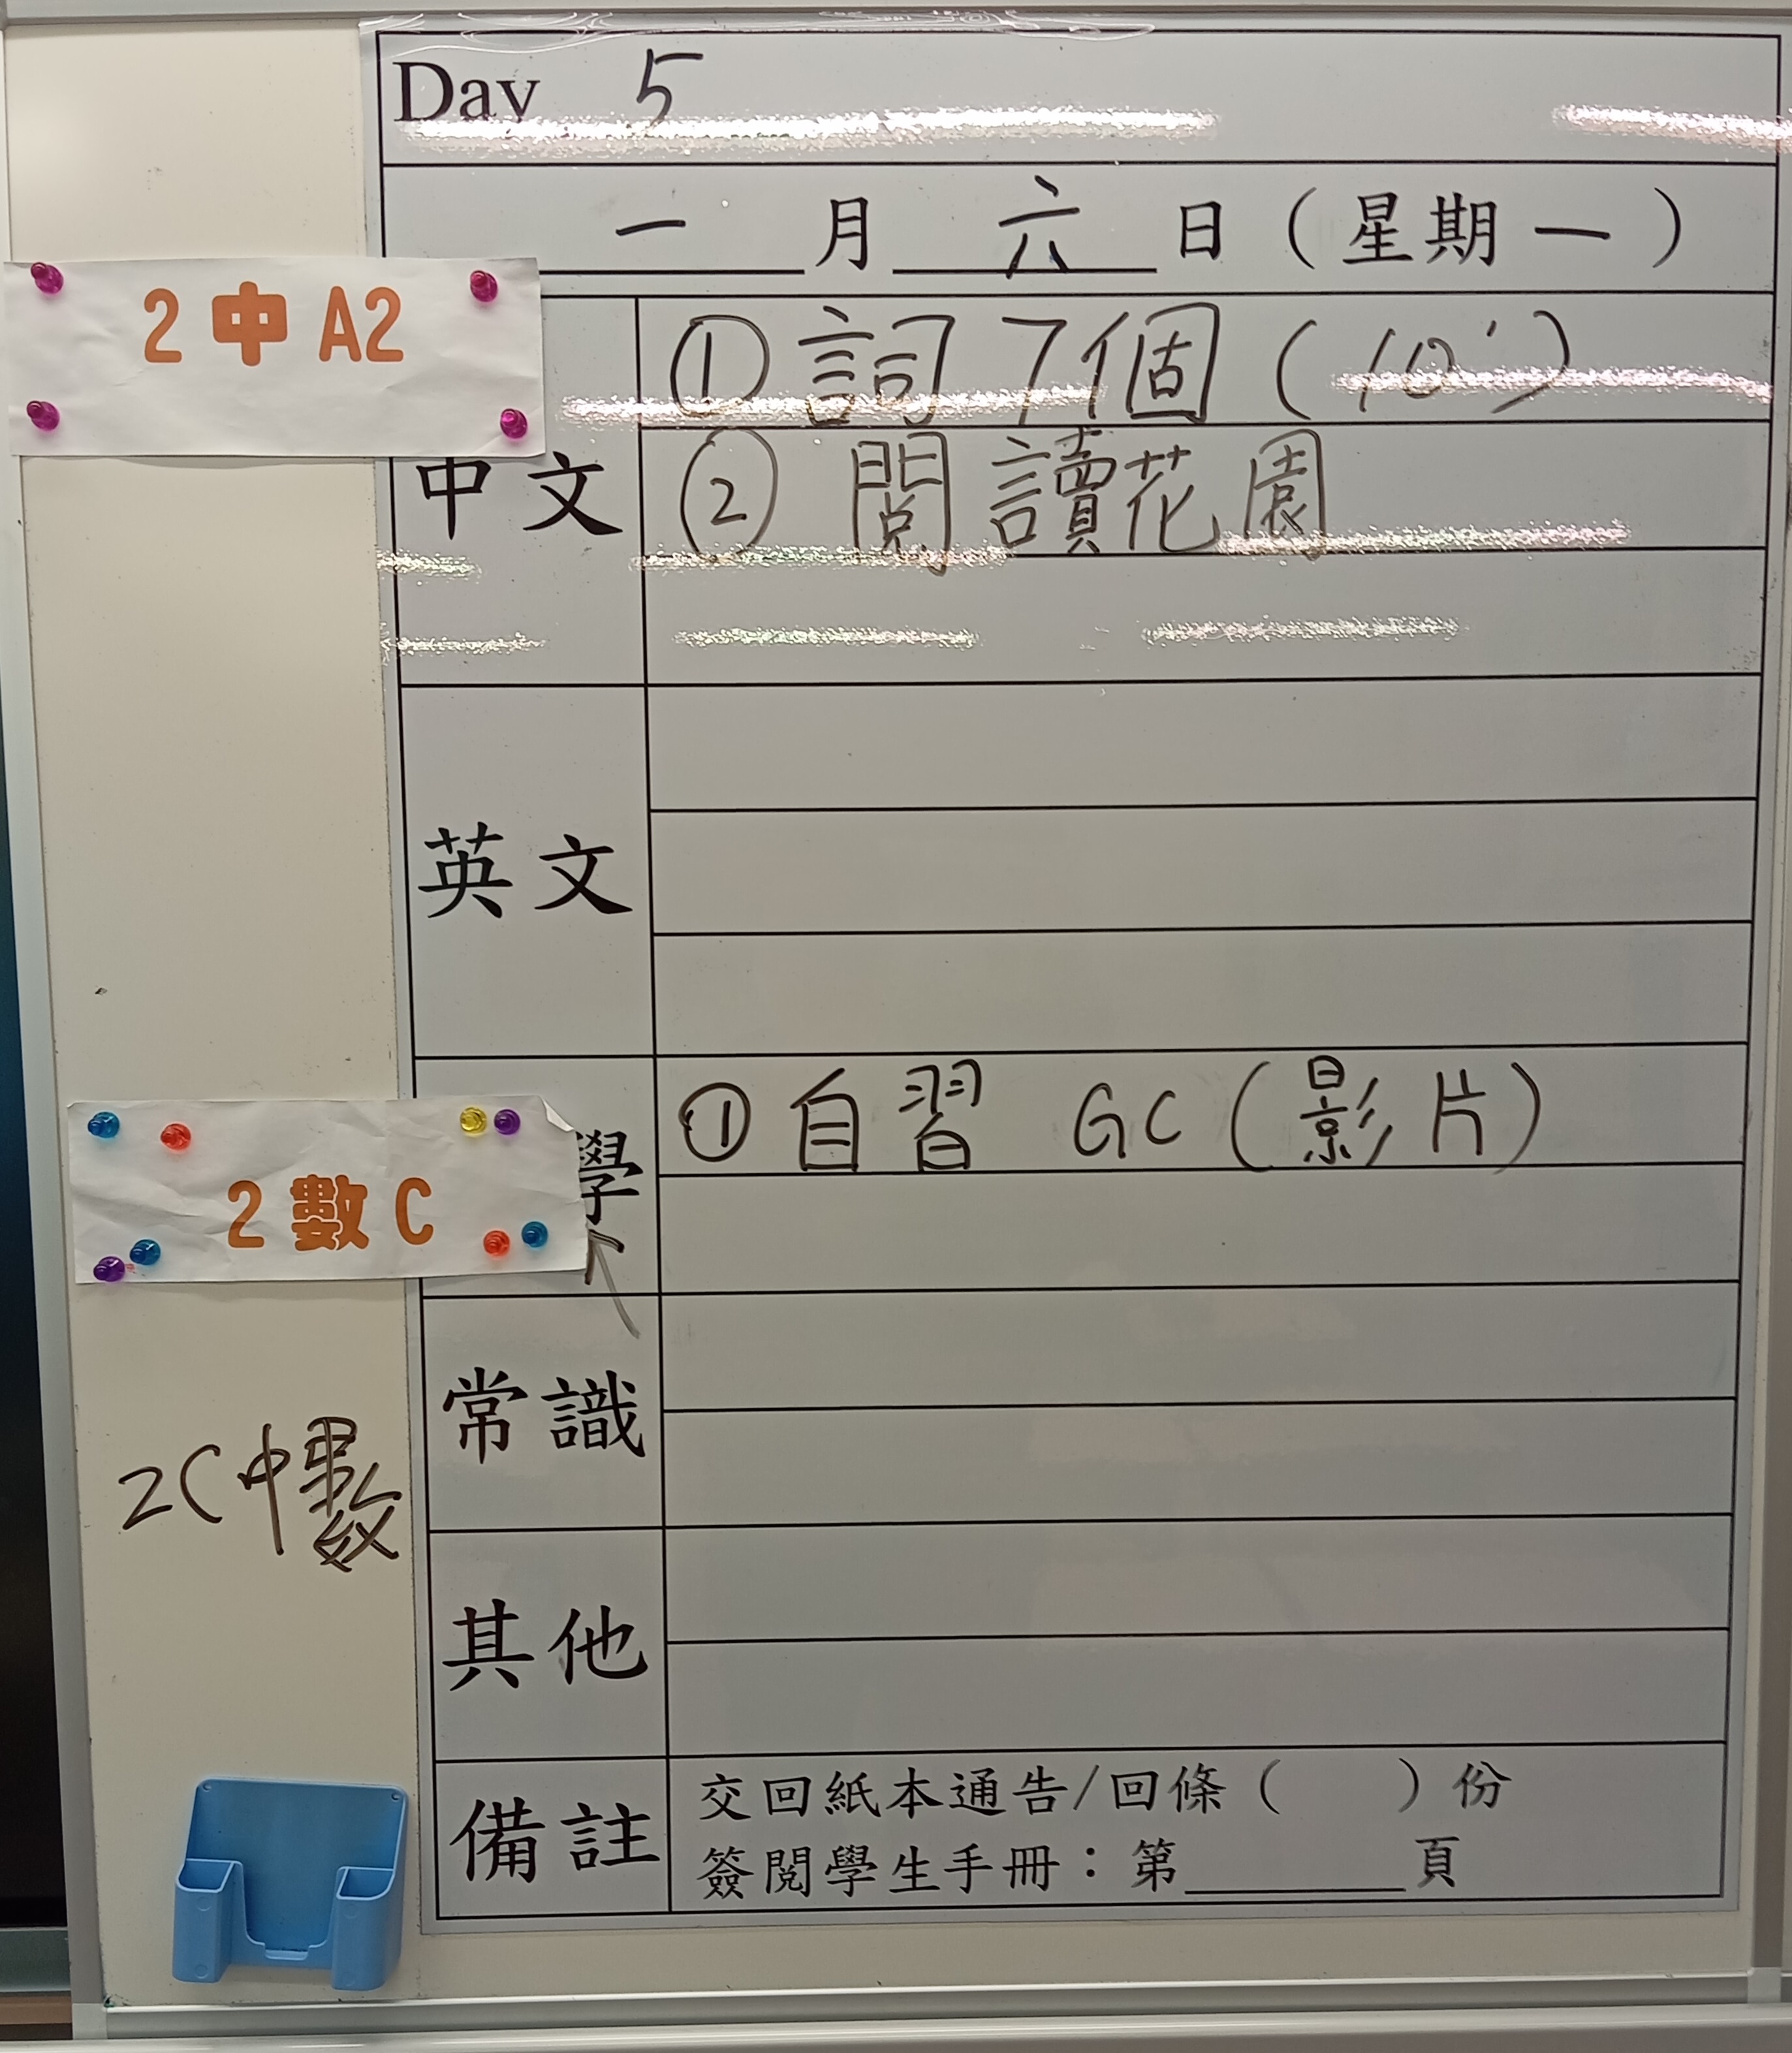 Day 5
一 月 六 日（星期一）
2 中 A2
中文
① 詞 7個 (10')
② 閱讀花園
英文
2 數 C
學
① 自習 GC (影片)
常識
2C中數
其他
備註
交回紙本通告/回條（ ）份
簽閱學生手冊：第______頁